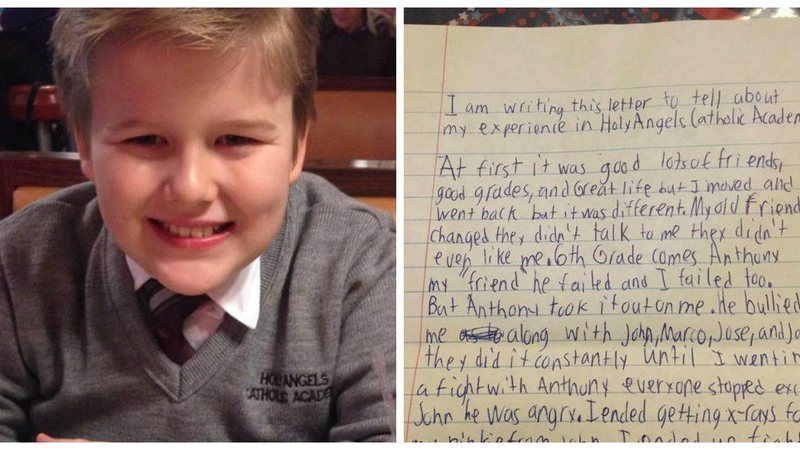 HOLY ANGELS
CATHOLIC ACADE
I am writing this letter to tell about
my experience in Holy Angels Catholic Academ
At first it was good lots of friends,
good grades, and Great life but I moved and
went back but it was different. My old friend
changed they didn't talk to me they didn't
even like me. 6th Grade comes Anthony
my "friend" he failed and I failed too.
But Anthony took it out on me. He bullied
me along with John, Marco, Jose, and Jo
they did it constantly until I went in
a fight with Anthony everyone stopped exc
John he was angry. I ended getting x-rays fo
my pinkie from John. I ended up fight